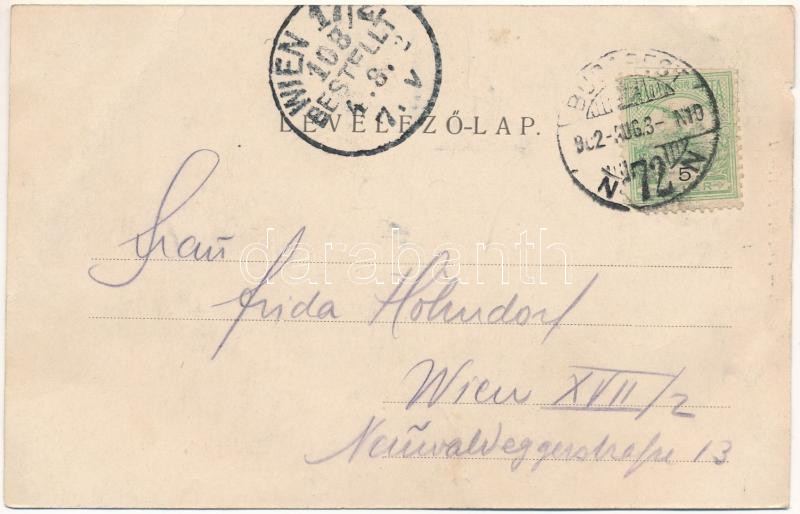 WIEN 17/2
108
BESTELLT
4.8.
7.V
BUDAPEST
902-AUG.3- N10
72
5
LEVELEZŐ-LAP.
darabanth
Frau
Frida Höhndorf
Wien XVII/2
Neuwaldeggerstraße 13